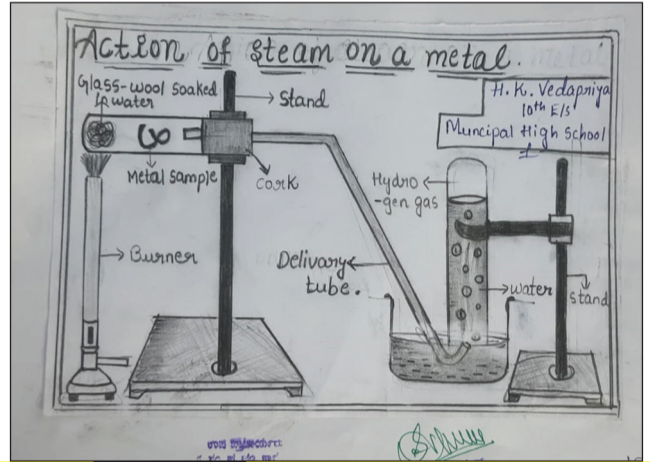 Action of steam on a metal.
H. K. Vedapriya
10th E/s
Muncipal High School
1
Glass-wool soaked
In water
Stand
Metal sample
Cork
Hydro
-gen gas
Burner
Delivary
tube.
water
stand